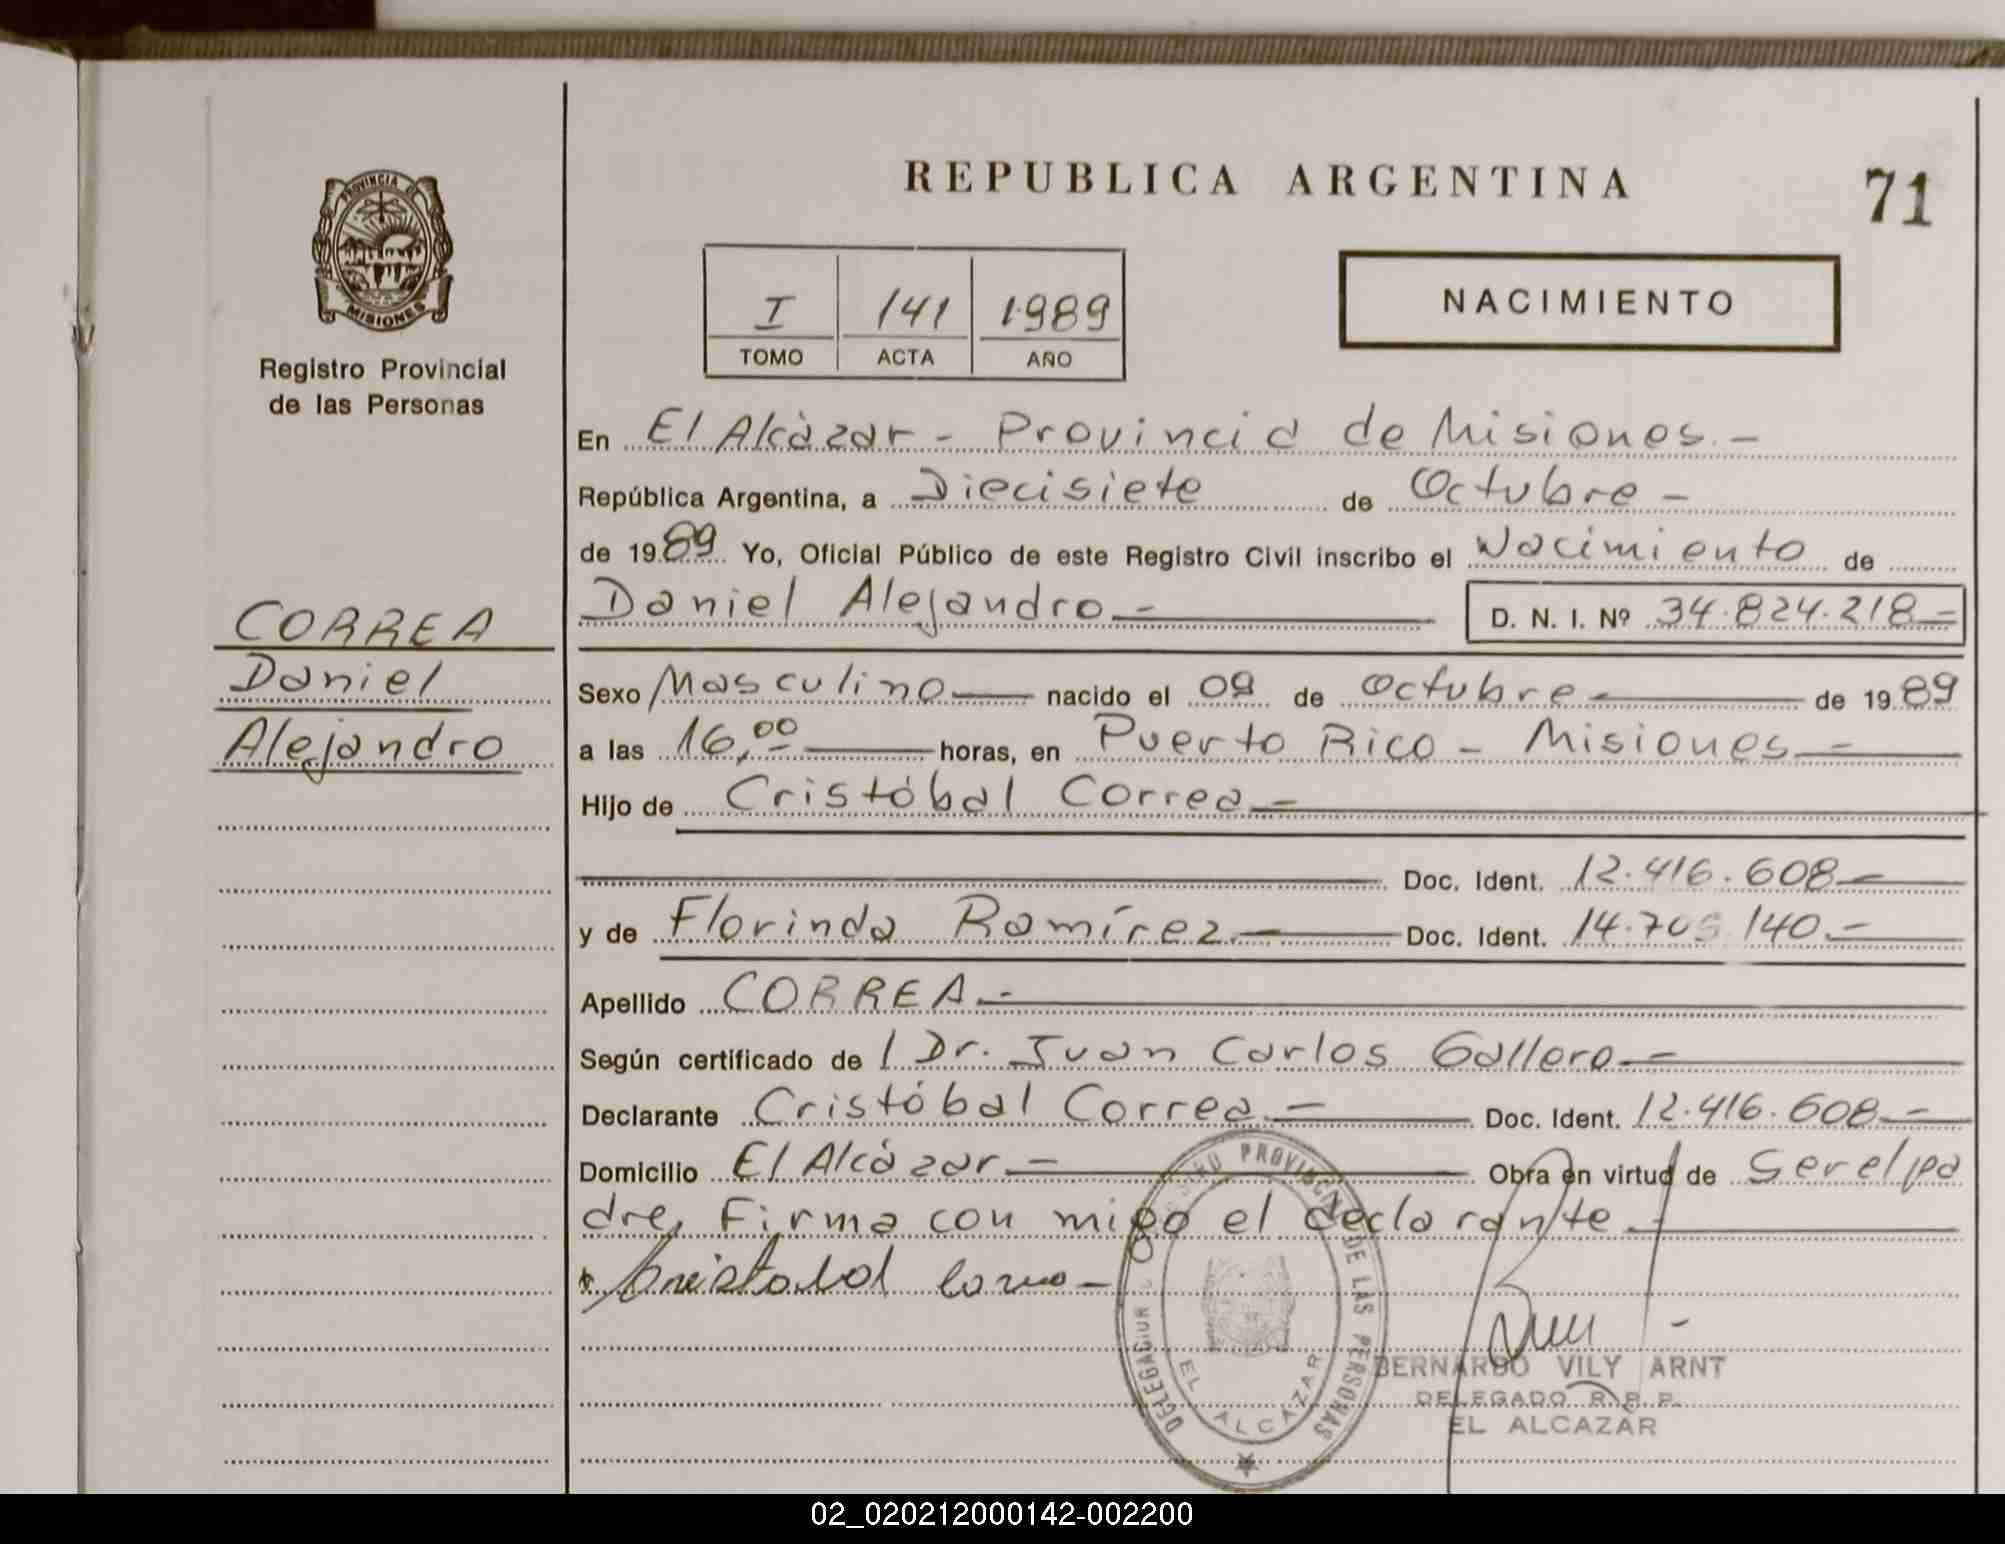 REPUBLICA ARGENTINA
71
PROVINCIA DE
MISIONES
Registro Provincial
de las Personas
I 141 1989
TOMO ACTA AÑO
NACIMIENTO
En El Alcázar - Provincia de Misiones.-
República Argentina, a Diecisiete de Octubre -
de 1989 Yo, Oficial Público de este Registro Civil inscribo el Nacimiento de
Daniel Alejandro.- D. N. I. Nº 34.824.218-
CORREA
Daniel
Alejandro
Sexo Masculino nacido el 09 de Octubre - de 1989
a las 16,00 horas, en Puerto Rico - Misiones -
Hijo de Cristóbal Correa -
Doc. Ident. 12.416.608-
y de Florinda Ramírez.- Doc. Ident. 14.705.140.-
Apellido CORREA.-
Según certificado de l Dr. Juan Carlos Gallero -
Declarante Cristóbal Correa.- Doc. Ident. 12.416.608-
Domicilio El Alcázar.- Obra en virtud de Ser el pa
dre, Firma con migo el declarante.-
Cristobal Correa -
DELEGACION REGISTRO PROVINCIAL DE LAS PERSONAS
EL ALCAZAR
BERNARDO VILY ARNT
DELEGADO R. P. P.
EL ALCAZAR
02_020212000142-002200